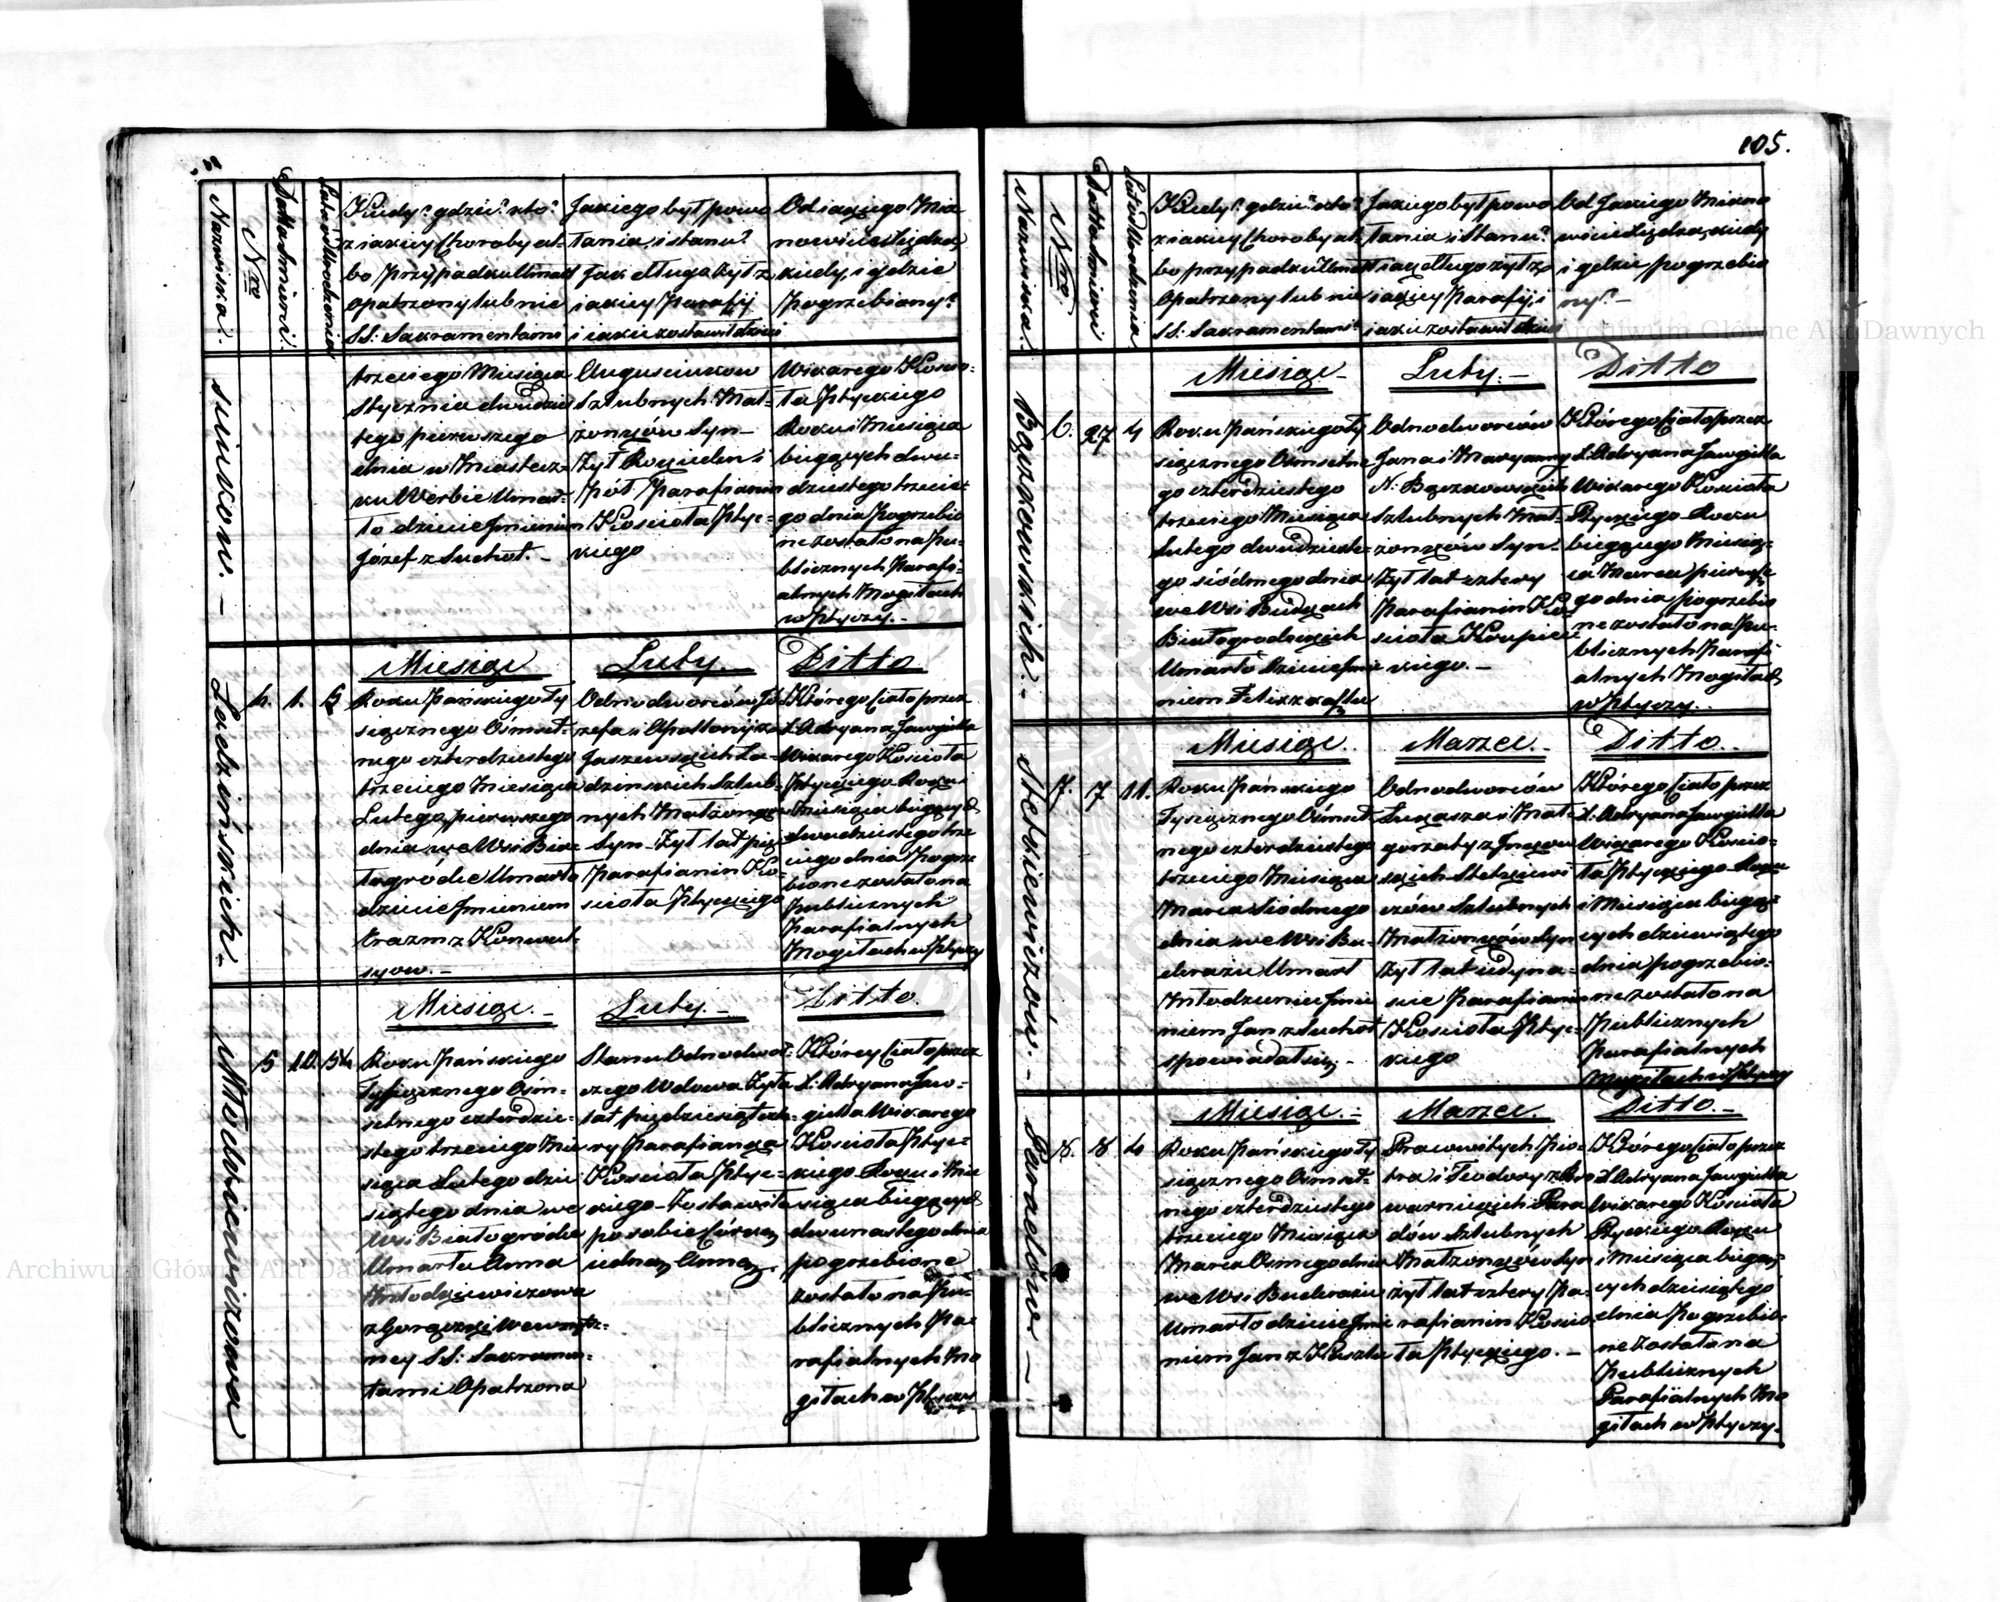 105.
Nazwiska?
Nro
Datta śmierci
Lata od Urodzenia
Kiedy? gdzie? kto?
z iakiey Choroby al-
bo przypadku Umarł
opatrzony lub nie
SS: Sakramentami
Jakiego był powo
łania, i stanu?
Jak długo żył z
iakiey Parafij
i iakie zostawił dzieci
Od iakiego Mia
nowicie Xiędza,
kiedy, i gdzie
Pogrzebiany?
trzeciego Miesiąca
Stycznia dwudzies
tego pierwszego
dnia w Miastecz-
ku Werbie Umar-
ło dziecie Imieniem
Józef z Suchot. -
Augusciukow
Szlubnych Mał-
żonkow Syn -
Żył Roku ieden i
Pół Parafianin
Kościoła Ptyc-
kiego
Wikarego Koscio-
ła Ptyckiego
Roku i Miesiąca
bieżących dwu-
dziestego trzecie-
go dnia Pogrzebio
ne zostało na Pu-
blicznych Parafi-
alnych Mogiłach
w Ptyczy. -
Ładzińskich -
4. 1. 5
Miesiąc
Luty. -
Ditto
Roku Pańskiego Ty
siącznego Ośmset-
nego czterdziestego
trzeciego Miesiąca
Lutego pierwszego
dnia we Wsi Bia-
łogródce Umarło
dziecie Imieniem
Erazm z Konwul-
syow. -
Odnodworców Jó
zefa i Apollonij z
Jaszewskich Ła-
dzinskich Szlub-
nych Małżonków
Syn - Żył lat pięć
Parafianin Ko-
ścioła Ptyckiego
Którego Ciało przez
X: Adryana Jawgiełła
Wikarego Kościoła
Ptyckiego Roku i
Miesiąca bieżących
dwudziestego trze
ciego dnia Pogrze
bione zostało na
Publicznych
Parafialnych
Mogiłach w Ptyczy
Młodzieiewiczowa
5 10. 54
Miesiąc. -
Luty. -
Ditto
Roku Pańskiego
Tysiącznego Ośm-
setnego czterdzie-
stego trzeciego Mie
siąca Lutego dzie
siątego dnia we
Wsi Białogródce
Umarła Anna
Młodziejewiczowa
z Gorączki Wewnętrz-
ney SS: Sakramen-
tami Opatrzona
Stanu Odnodwor-
czego Wdowa Żyła
lat pięćdziesiąt czte-
ry Parafianka
Kościoła Ptyc-
kiego - Zostawiła
po sobie Córkę
iedną Annę.
Którey Ciało przez
X: Adryana Jaw-
giełła Wikarego
Kościoła Ptyc-
kiego Roku i Mie
siąca bieżących
dwunastego dnia
pogrzebione
zostało na Pu-
blicznych Pa-
rafialnych Mo
giłach w Ptyczy
Nazwiska?
Nro
Datta śmierci
Lata od Urodzenia
Kiedy? gdzie? kto?
z iakiey Choroby al-
bo przypadku Umarł
opatrzony lub nie
SS: Sakramentami?
Jakiego był powo
łania i Stanu?
i iak długo żył z
iakiey Parafij, i
iakie zostawił dzieci
Od Jakiego Miano
wicie Xiędza, kiedy
i gdzie pogrzebio
ny? -
Bączkowskich. -
6. 27 4
Miesiąc -
Luty. -
Ditto
Roku Pańskiego Ty
siącznego Ośmsetne
go czterdziestego
trzeciego Miesiąca
Lutego dwudzieste-
go siódmego dnia
we Wsi Budkach
Białogrodzkich
Umarło Dziecie Imie
niem Felix z kaszlu
Odnodworców
Jana i Maryanny
N: Bączkowskich
Szlubnych Mał-
żonków Syn -
Żył lat cztery
Parafianin Ko
scioła Krupiec
kiego. -
Którego Ciało przez
X: Adryana Jawgiełła
Wikarego Kościoła
Ptyckiego Roku
bieżącego Miesią-
ca Marca pierwsze
go dnia pogrzebio
ne zostało na Pu-
blicznych Parafi-
alnych Mogiłach
w Ptyczy. -
7. 7 11.
Miesiąc. -
Marzec. -
Ditto. -
Roku Pańskiego
Tysiącznego Ośmset
nego czterdziestego
trzeciego Miesiąca
Marca Siódmego
dnia we Wsi Bu-
deražu Umarł
Młodzieniec Imie
niem Jan z Suchot
spowiadał się. -
Odnodworców
Łukasza i Mał-
gorzaty z
Szlubnych
Małżonków Syn
żył lat iedyna-
ście Parafianin
Kościoła Ptyc-
kiego
Którego Ciało przez
X: Adryana Jawgiełła
Wikarego Koscio-
ła Ptyckiego Roku
i Miesiąca bieżą-
cych dziewiątego
dnia pogrzebio-
ne zostało na
Publicznych
Parafialnych
Mogiłach w Ptyczy
Paradów -
8. 8 4
Miesiąc. -
Marzec
Ditto. -
Roku Pańskiego Ty
siącznego Ośmset-
nego czterdziestego
trzeciego Miesiąca
Marca Osmego dnia
we Wsi Buderażu
Umarło dziecie Imie
niem Jan z Kaszlu
Prawosłych Pio-
tra i Teodory z
Para
dów Szlubnych
Małżonków Syn
żył lat cztery Pa-
rafianin Koscio
ła Ptyckiego. -
Którego Ciało przez
X: Adryana Jawgiełła
Wikarego Kościoła
Ptyckiego Roku
i Miesiąca bieżą-
cych dziesiątego
dnia Pogrzebio-
ne Zostało na
Publicznych
Parafialnych Mo
giłach w Ptyczy.
Archiwum Główne Akt Dawnych
Archiwum Główne Akt Dawnych